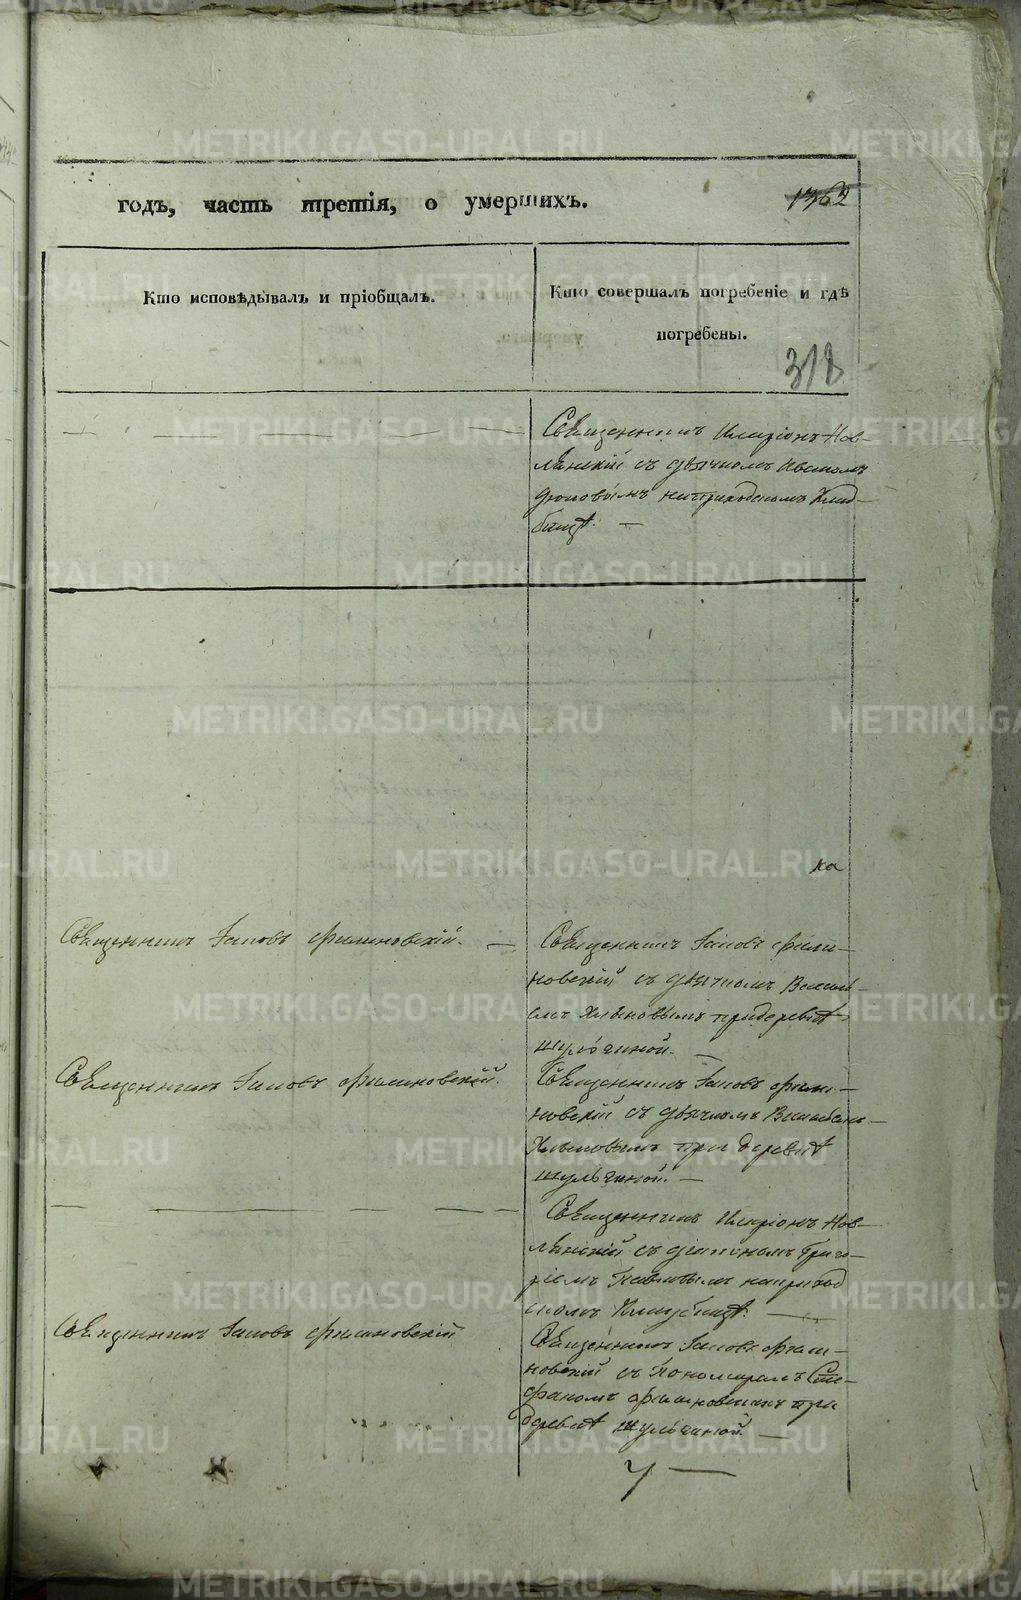 годъ, часть третія, о умершихъ.
1362
Кто исповѣдывалъ и пріобщалъ.
Кто совершалъ погребеніе и гдѣ
погребены.
318
Священникъ Иларіонъ Нов-
лянскій съ дьячкомъ Иваномъ
на приходскомъ Клад-
бищѣ. —
на
Священникъ Іаковъ Филиновскій. —
Священникъ Іаковъ Фили-
новскій съ дьячкомъ Василь-
емъ Хлыновымъ при деревнѣ
Шульгиной. —
Священникъ Іаковъ Филиновскій.
Священникъ Іаковъ Фили-
новскій съ дьячкомъ Васильемъ
Хлыновымъ при деревнѣ
Шульгиной. —
Священникъ Иларіонъ Нов-
лянскій съ діакономъ Григо-
ріемъ Павловымъ на приход
скомъ Кладбищѣ. —
Священникъ Іаковъ Филиновскій
Священникъ Іаковъ Фили-
новскій съ Пономаремъ Сте-
фаномъ Филиновскимъ при
деревнѣ Шульгиной. —
METRIKI.GASO-URAL.RU